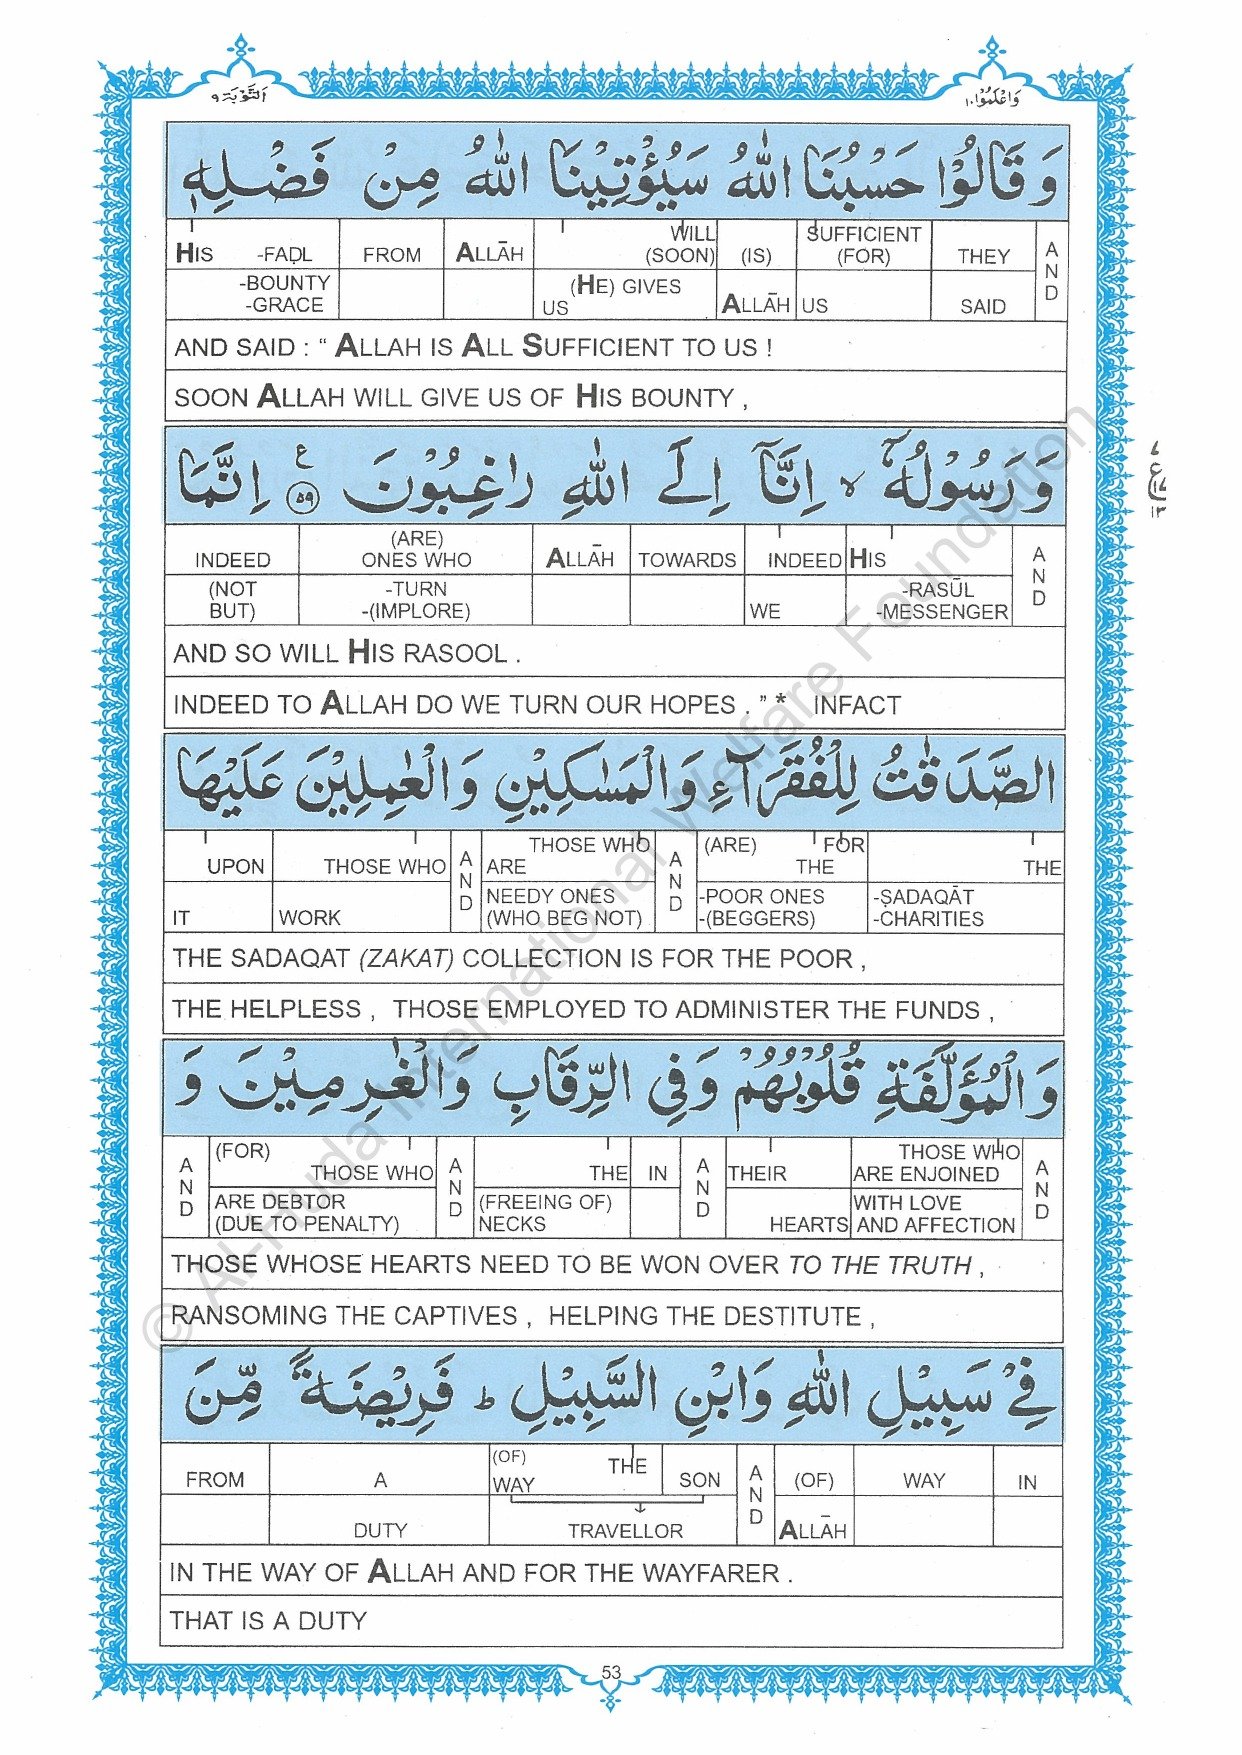 التَّوْبَة ٩
وَاعْلَمُوْا ١٠
وَ قَالُوْا حَسْبُنَا اللّٰهُ سَيُؤْتِيْنَا اللّٰهُ مِنْ فَضْلِهٖ
HIS -FAḌL FROM ALLĀH WILL (SOON) (IS) SUFFICIENT (FOR) THEY AND
-BOUNTY -GRACE (HE) GIVES US ALLĀH US SAID
AND SAID : “ ALLAH IS ALL SUFFICIENT TO US !
SOON ALLAH WILL GIVE US OF HIS BOUNTY ,
وَ رَسُوْلُهٗۤ ۙ اِنَّاۤ اِلَى اللّٰهِ رٰغِبُوْنَ ﴿۵۹﴾ ع اِنَّمَا
INDEED (ARE) ONES WHO ALLĀH TOWARDS INDEED HIS AND
(NOT BUT) -TURN -(IMPLORE) WE -RASŪL -MESSENGER
AND SO WILL HIS RASOOL .
INDEED TO ALLAH DO WE TURN OUR HOPES . ” * INFACT
الصَّدَقٰتُ لِلْفُقَرَآءِ وَ الْمَسٰكِيْنِ وَ الْعٰمِلِيْنَ عَلَيْهَا
UPON THOSE WHO AND THOSE WHO ARE AND (ARE) FOR THE THE
IT WORK NEEDY ONES (WHO BEG NOT) -POOR ONES -(BEGGERS) -ṢADAQĀT -CHARITIES
THE SADAQAT (ZAKAT) COLLECTION IS FOR THE POOR ,
THE HELPLESS , THOSE EMPLOYED TO ADMINISTER THE FUNDS ,
وَ الْمُؤَلَّفَةِ قُلُوْبُهُمْ وَ فِي الرِّقَابِ وَ الْغٰرِمِيْنَ وَ
AND (FOR) THOSE WHO AND THE IN AND THEIR THOSE WHO ARE ENJOINED AND
ARE DEBTOR (DUE TO PENALTY) (FREEING OF) NECKS HEARTS WITH LOVE AND AFFECTION
THOSE WHOSE HEARTS NEED TO BE WON OVER TO THE TRUTH ,
RANSOMING THE CAPTIVES , HELPING THE DESTITUTE ,
فِيْ سَبِيْلِ اللّٰهِ وَ ابْنِ السَّبِيْلِ ؕ فَرِيْضَةً مِّنَ
FROM A (OF) WAY THE SON AND (OF) WAY IN
DUTY TRAVELLOR ALLĀH
IN THE WAY OF ALLAH AND FOR THE WAYFARER .
THAT IS A DUTY
53
© Al-Huda International Welfare Foundation